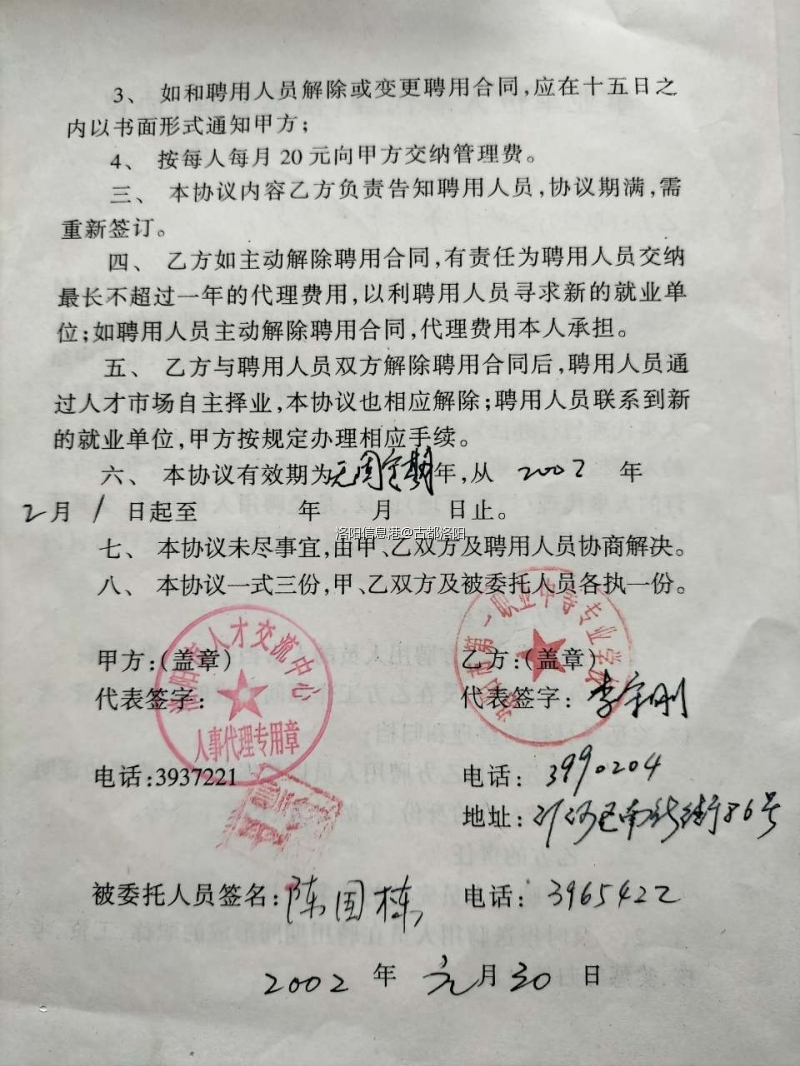 3、 如和聘用人员解除或变更聘用合同,应在十五日之
内以书面形式通知甲方;
4、 按每人每月 20 元向甲方交纳管理费。
三、 本协议内容乙方负责告知聘用人员,协议期满,需
重新签订。
四、 乙方如主动解除聘用合同,有责任为聘用人员交纳
最长不超过一年的代理费用,以利聘用人员寻求新的就业单
位;如聘用人员主动解除聘用合同,代理费用本人承担。
五、 乙方与聘用人员双方解除聘用合同后,聘用人员通
过人才市场自主择业,本协议也相应解除;聘用人员联系到新
的就业单位,甲方按规定办理相应手续。
六、 本协议有效期为无固定期年,从 2002 年
2月 1 日起至 年 月 日止。
洛阳信息港@古都洛阳
七、 本协议未尽事宜,由甲、乙双方及聘用人员协商解决。
八、 本协议一式三份,甲、乙双方及被委托人员各执一份。
洛阳市人才交流中心
人事代理专用章
第一职业中等专业学校
甲方:(盖章)
乙方:(盖章)
代表签字:
代表签字: 李宝刚
电话:3937221
电话: 3990204
地址: 区南 街86号
被委托人员签名: 陈国栋
电话: 3965422
2002 年 元 月 30 日